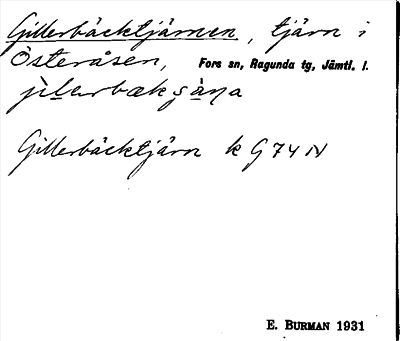 Gillerbäcktjärnen, tjärn i
Österåsen, Fors sn, Ragunda tg, Jämtl. l.
Gillerbäcktjärn k G74N
E. BURMAN 1931